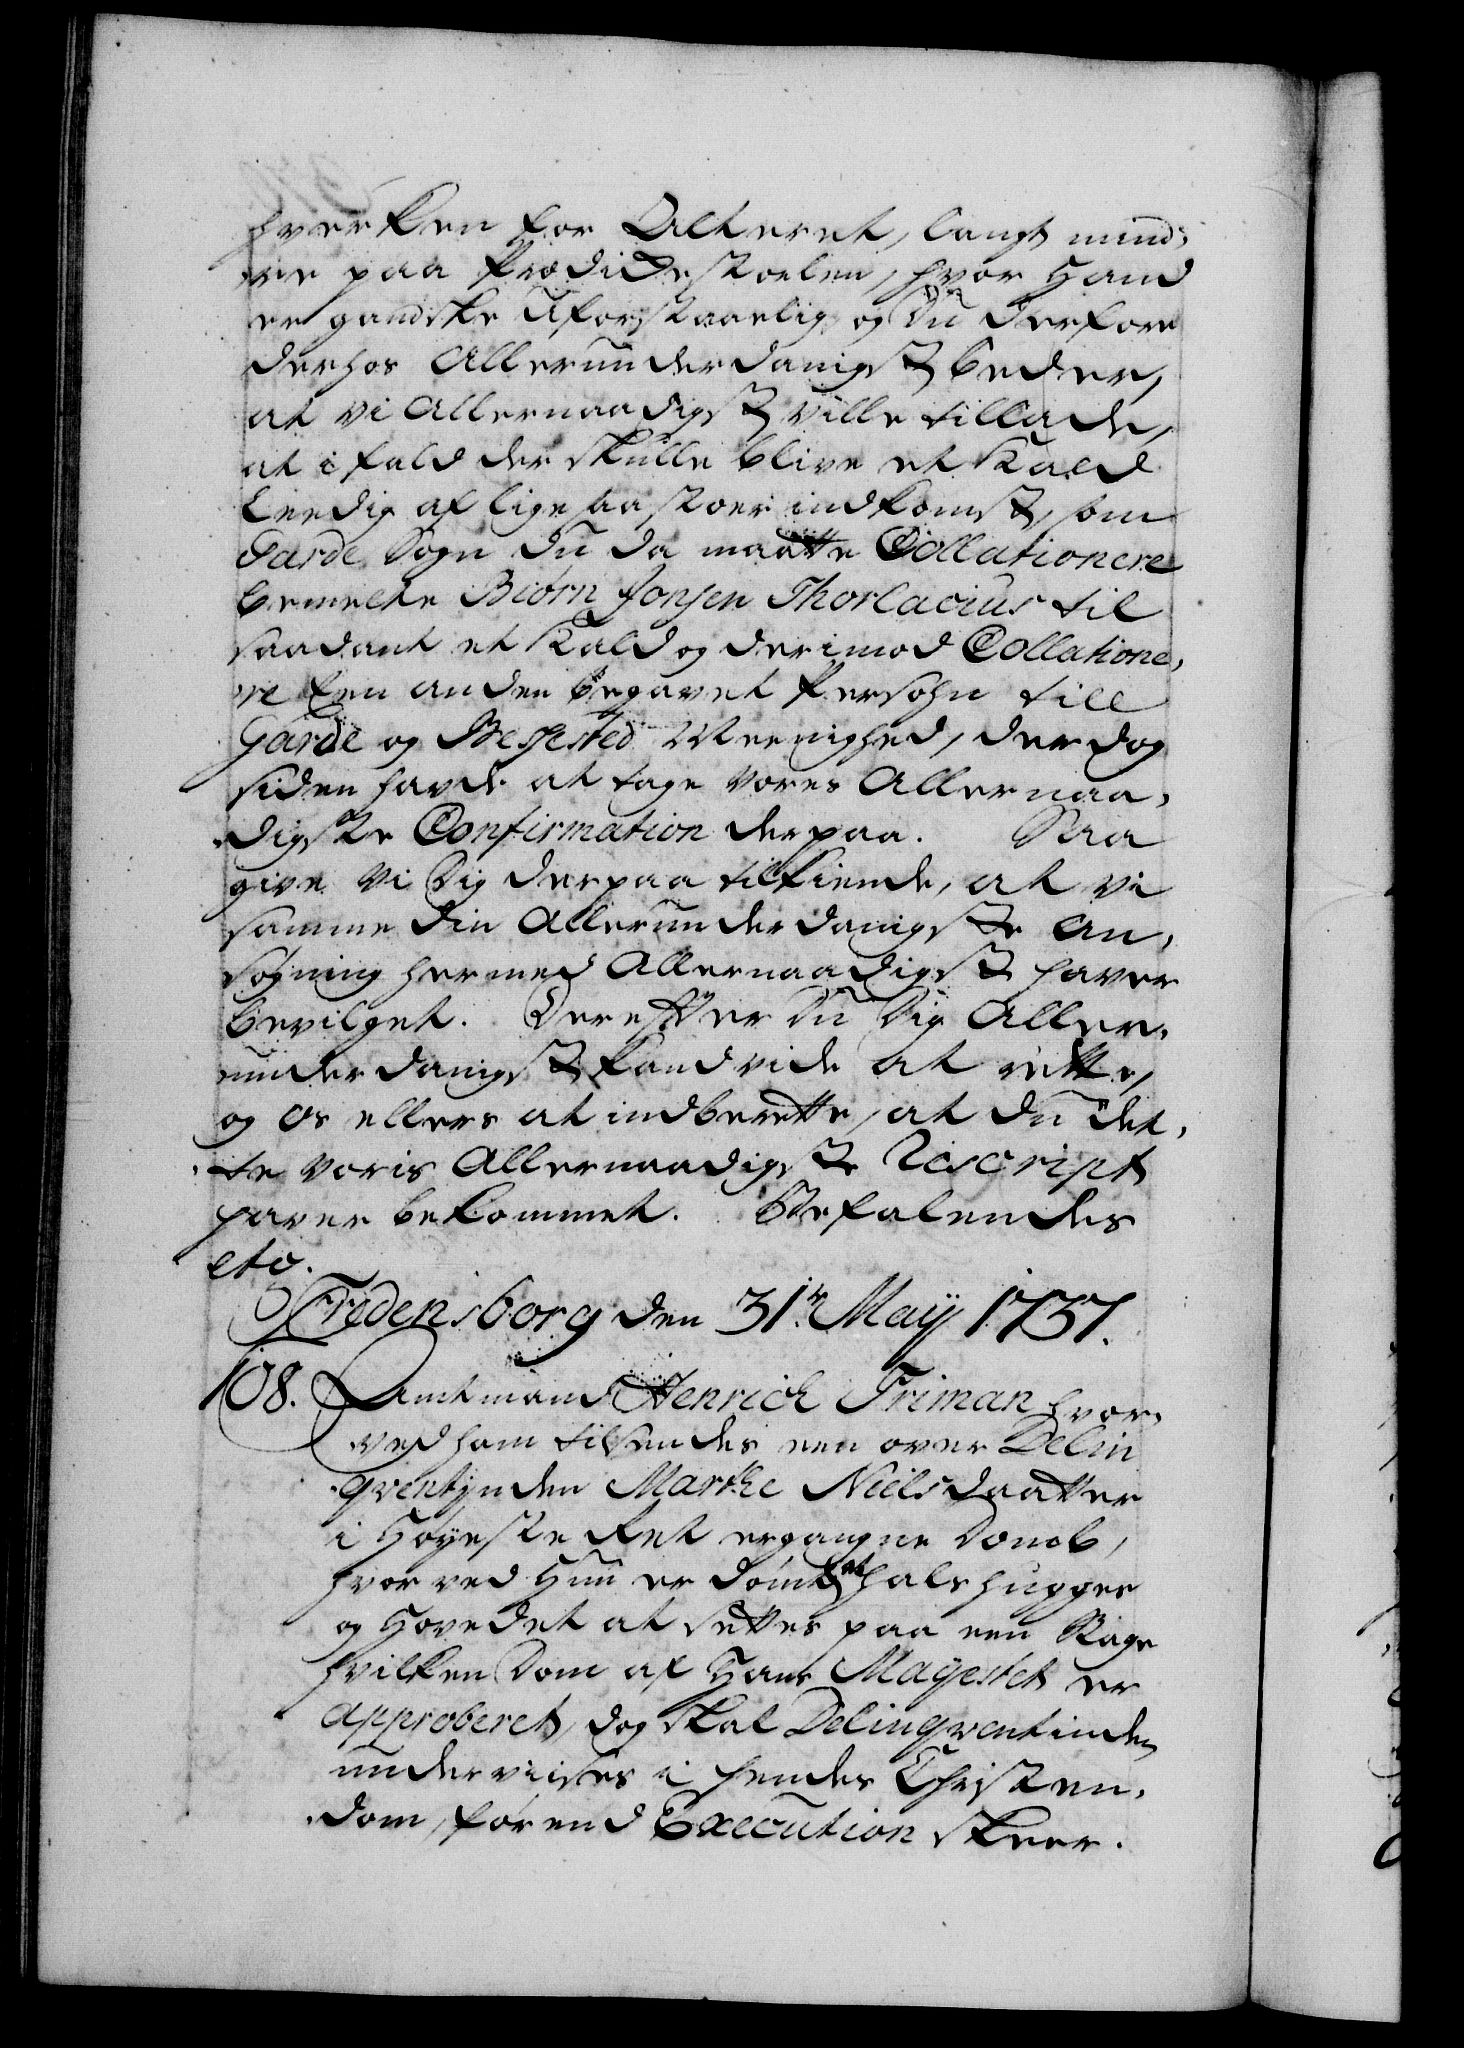 hverken for Alteret, langt mind,
re paa Prædikestoelen, hvor Hand
er gandske Uforstaaelig, og Du derfore
derhos Allerunderdanigst beder,
at vi Allernaadigst ville tillade,
at i fald der skulle blive et Kald
Leedig af lige saa stoer indkomst, som
Garde Sogn Du da maatte Collationere
bemelte Biórn Jonsen Thorlacius til
saadant et Kald og derimod Collatione,
re Een anden begavet Persohn till
Garde og Bessested Meenighed, der dog
siden havde at tage vores Allernaa,
digste Confirmation derpaa. Saa
give Vi Dig derpaa tilkiende, at vi
samme Din Allerunderdanigste An,
søgning hermed Allernaadigst haver
bevilget. Derefter Du Dig Aller,
underdanigst kand vide at rette,
og Os ellers at indberette, at Du det,
te voris Allernaadigste Rescript
haver bekommet. Befalendes
etc.
Fredensborg den 31te May 1737.
108. Amtmand Henrich Friman hvor,
ved ham tilsendes een over Delin
qventinden Marthe Nielsdaatter
i Høyeste Ret ergangne Domb,
hvorved Hun er dømt at halshugges
og Hovedet at settes paa een Stage
hvilken Dom af Hans Mayestet er
approberet, dog skal Delinqventinden
underviises i hendes Christen,
dom, førend Execution skeer.